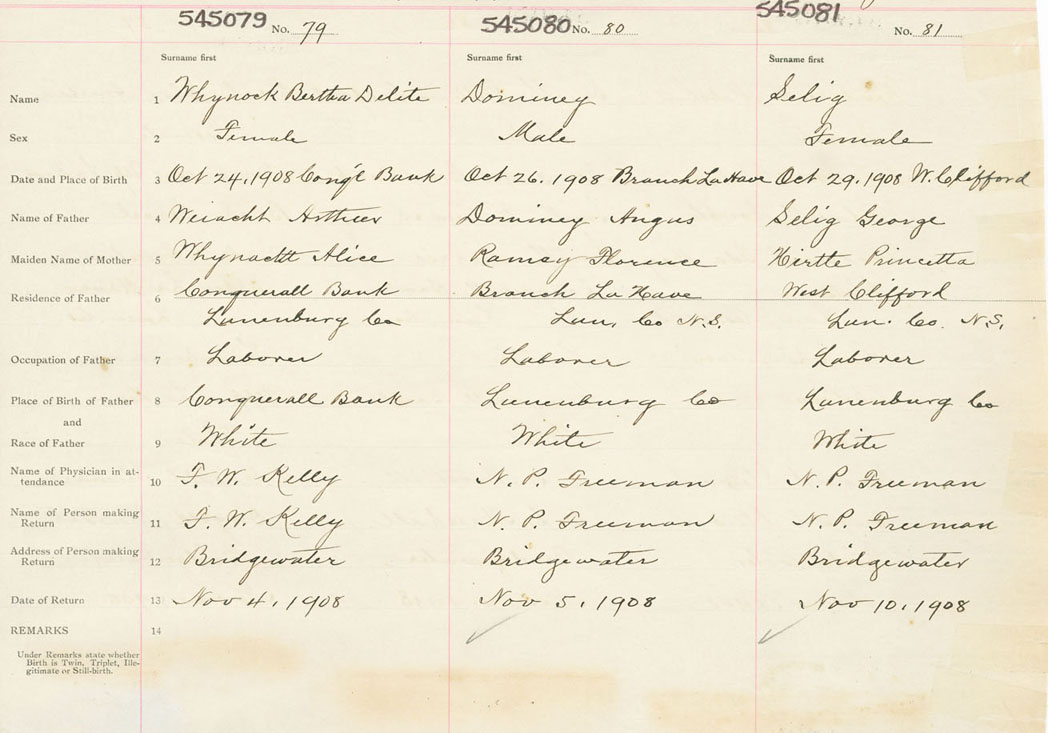 545079 No. 79 545080 No. 80 545081 No. 81
Surname first Surname first Surname first
Name 1 Whynock Bertha Delite Dominey Selig
Sex 2 Female Male Female
Date and Place of Birth 3 Oct 24, 1908 Conq'l Bank Oct 26. 1908 Branch La Have Oct 29, 1908 W. Clifford
Name of Father 4 Arthur Dominey Angus Selig George
Maiden Name of Mother 5 Whynacht Alice Ramey Florence Hirtle Princetta
Residence of Father 6 Conquerall Bank Branch La Have West Clifford
Lunenburg Co Lun. Co N.S. Lun. Co. N.S.
Occupation of Father 7 Laborer Laborer Laborer
Place of Birth of Father 8 Conquerall Bank Lunenburg Co Lunenburg Co
and
Race of Father 9 White White White
Name of Physician in at-
tendance 10 F. W. Kelly N. P. Freeman N. P. Freeman
Name of Person making
Return 11 F. W. Kelly N. P. Freeman N. P. Freeman
Address of Person making
Return 12 Bridgewater Bridgewater Bridgewater
Date of Return 13 Nov 4, 1908 Nov 5, 1908 Nov 10, 1908
REMARKS 14
Under Remarks state whether
Birth is Twin, Triplet, Ille-
gitimate or Still-birth.